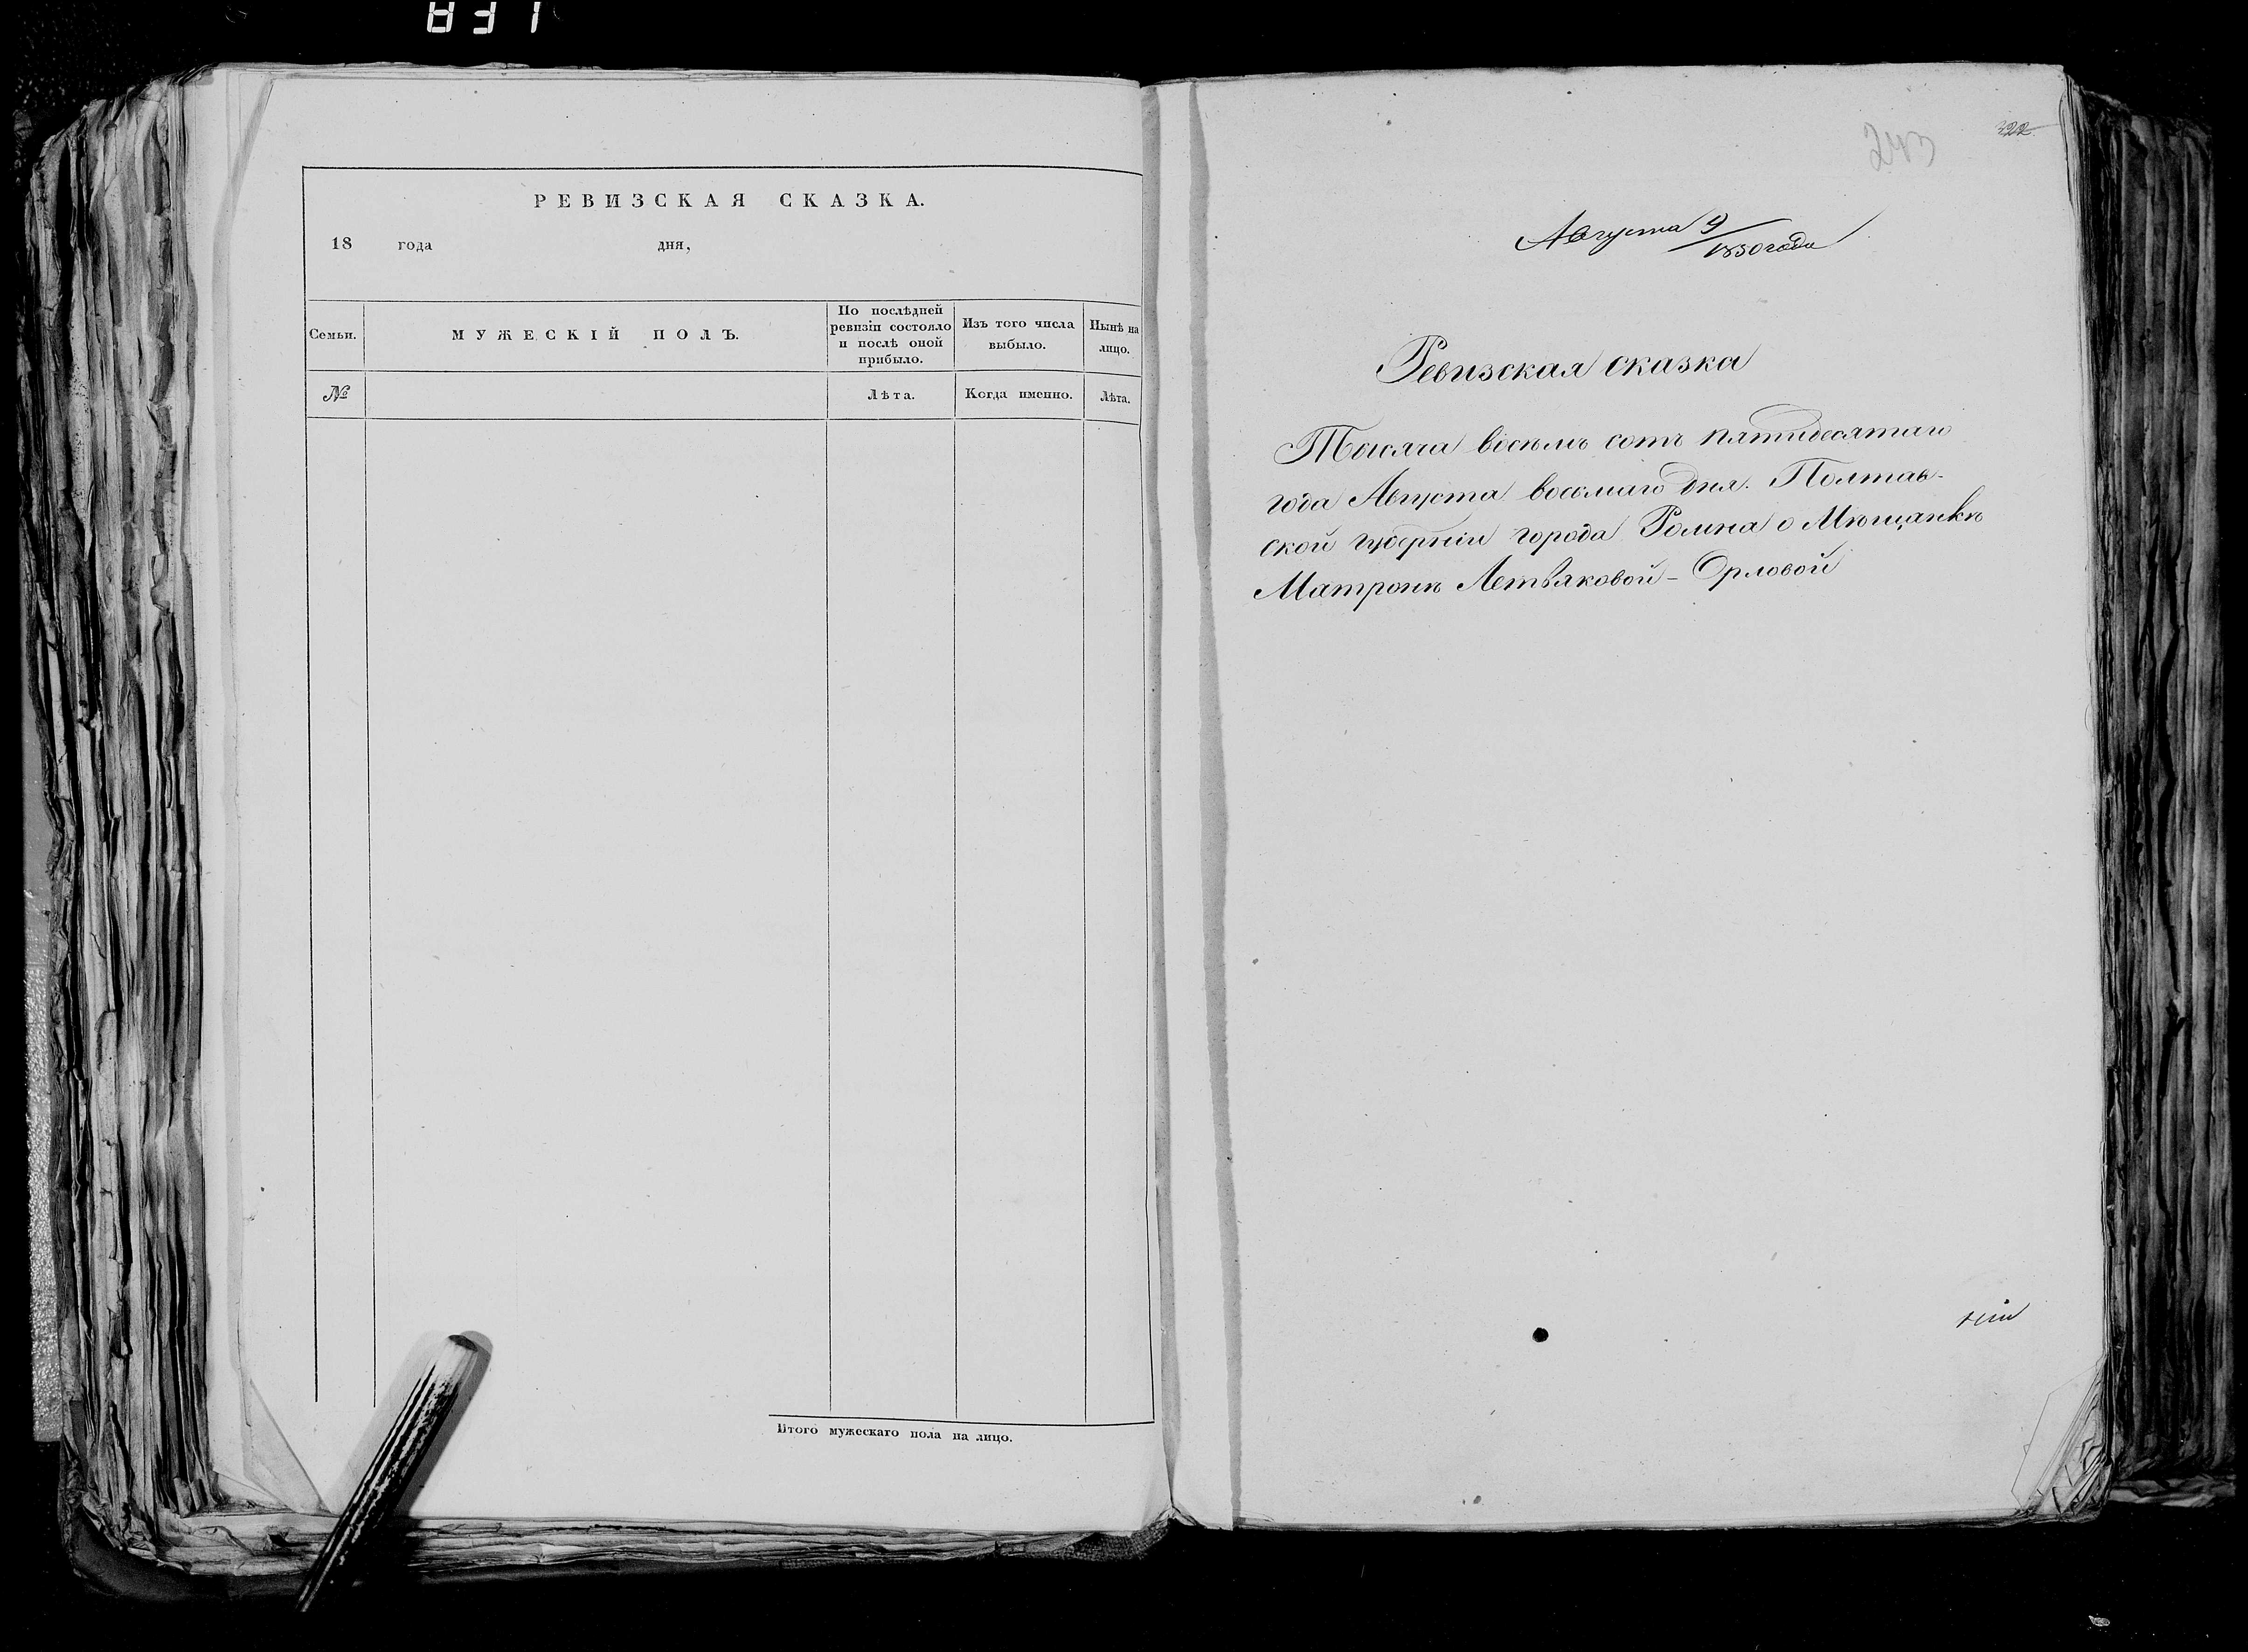 РЕВИЗСКАЯ СКАЗКА.
18 года дня,
Семьи.
МУЖЕСКІЙ ПОЛЪ.
По послѣдней
ревизіи состояло
и послѣ оной
прибыло.
Изъ того числа
выбыло.
Нынѣ на
лицо.
№
Лѣта.
Когда именно.
Лѣта.
Итого мужескаго пола на лицо.
243
322
Августа 9/1850 года
Ревизская сказка
Тысяча восемь сотъ пятидесятаго
года Августа восьмаго дня. Полтав-
ской губерніи города Ромна о Мѣщанкѣ
Матронѣ Летвяковой-Орловой